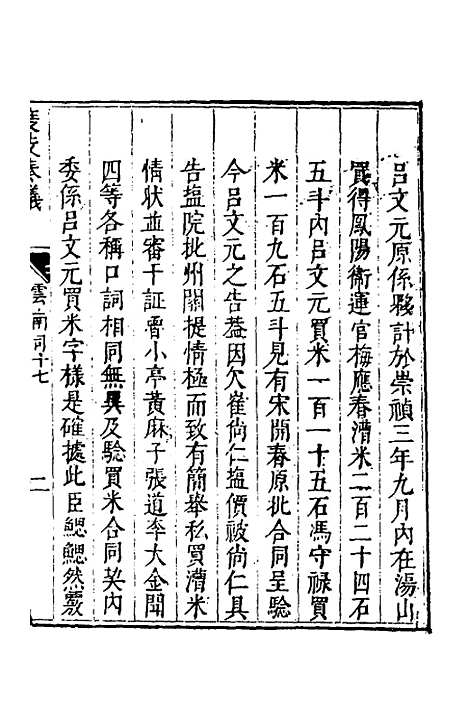 呂文元原係夥計於崇禎三年九月內在湯山
買得鳳陽衛運官梅應春漕米二百二十四石
五斗內呂文元買米一百一十五石馮守祿買
米一百九石五斗見有宋開春原批合同呈驗
今呂文元之告葢因欠崔尙仁塩價被尙仁具
告塩院批州關提情極而致有簡舉私買漕米
情狀並審干証曹小亭黃麻子張道李大金聞
四等各稱口詞相同無異及驗買米合同契內
委係呂文元買米字樣是確據此臣鰓鰓然覈
奏議
雲南司十七
二